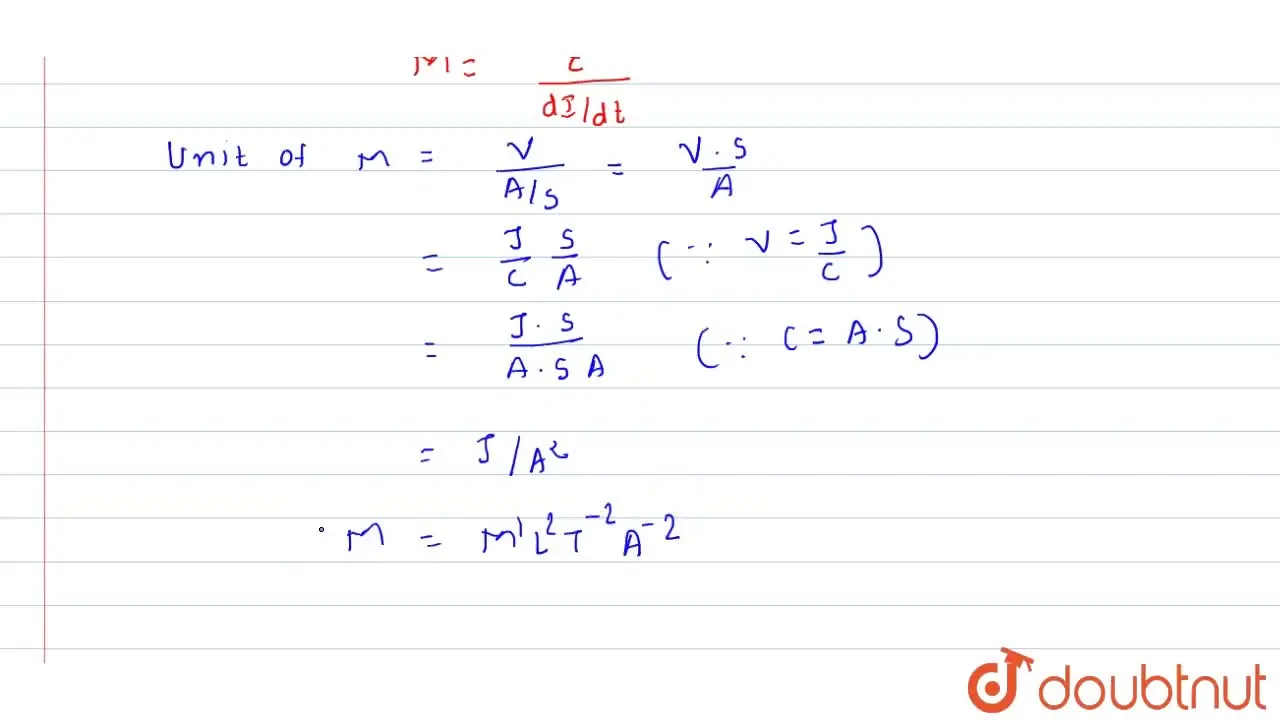 M =
dI/dt
Unit of M = V / A/s = V · s / A
= J/C s/A (∵ V = J/C)
= J · s / A · s A (∵ C = A · s)
= J/A²
M = M¹L²T⁻²A⁻²
doubtnut